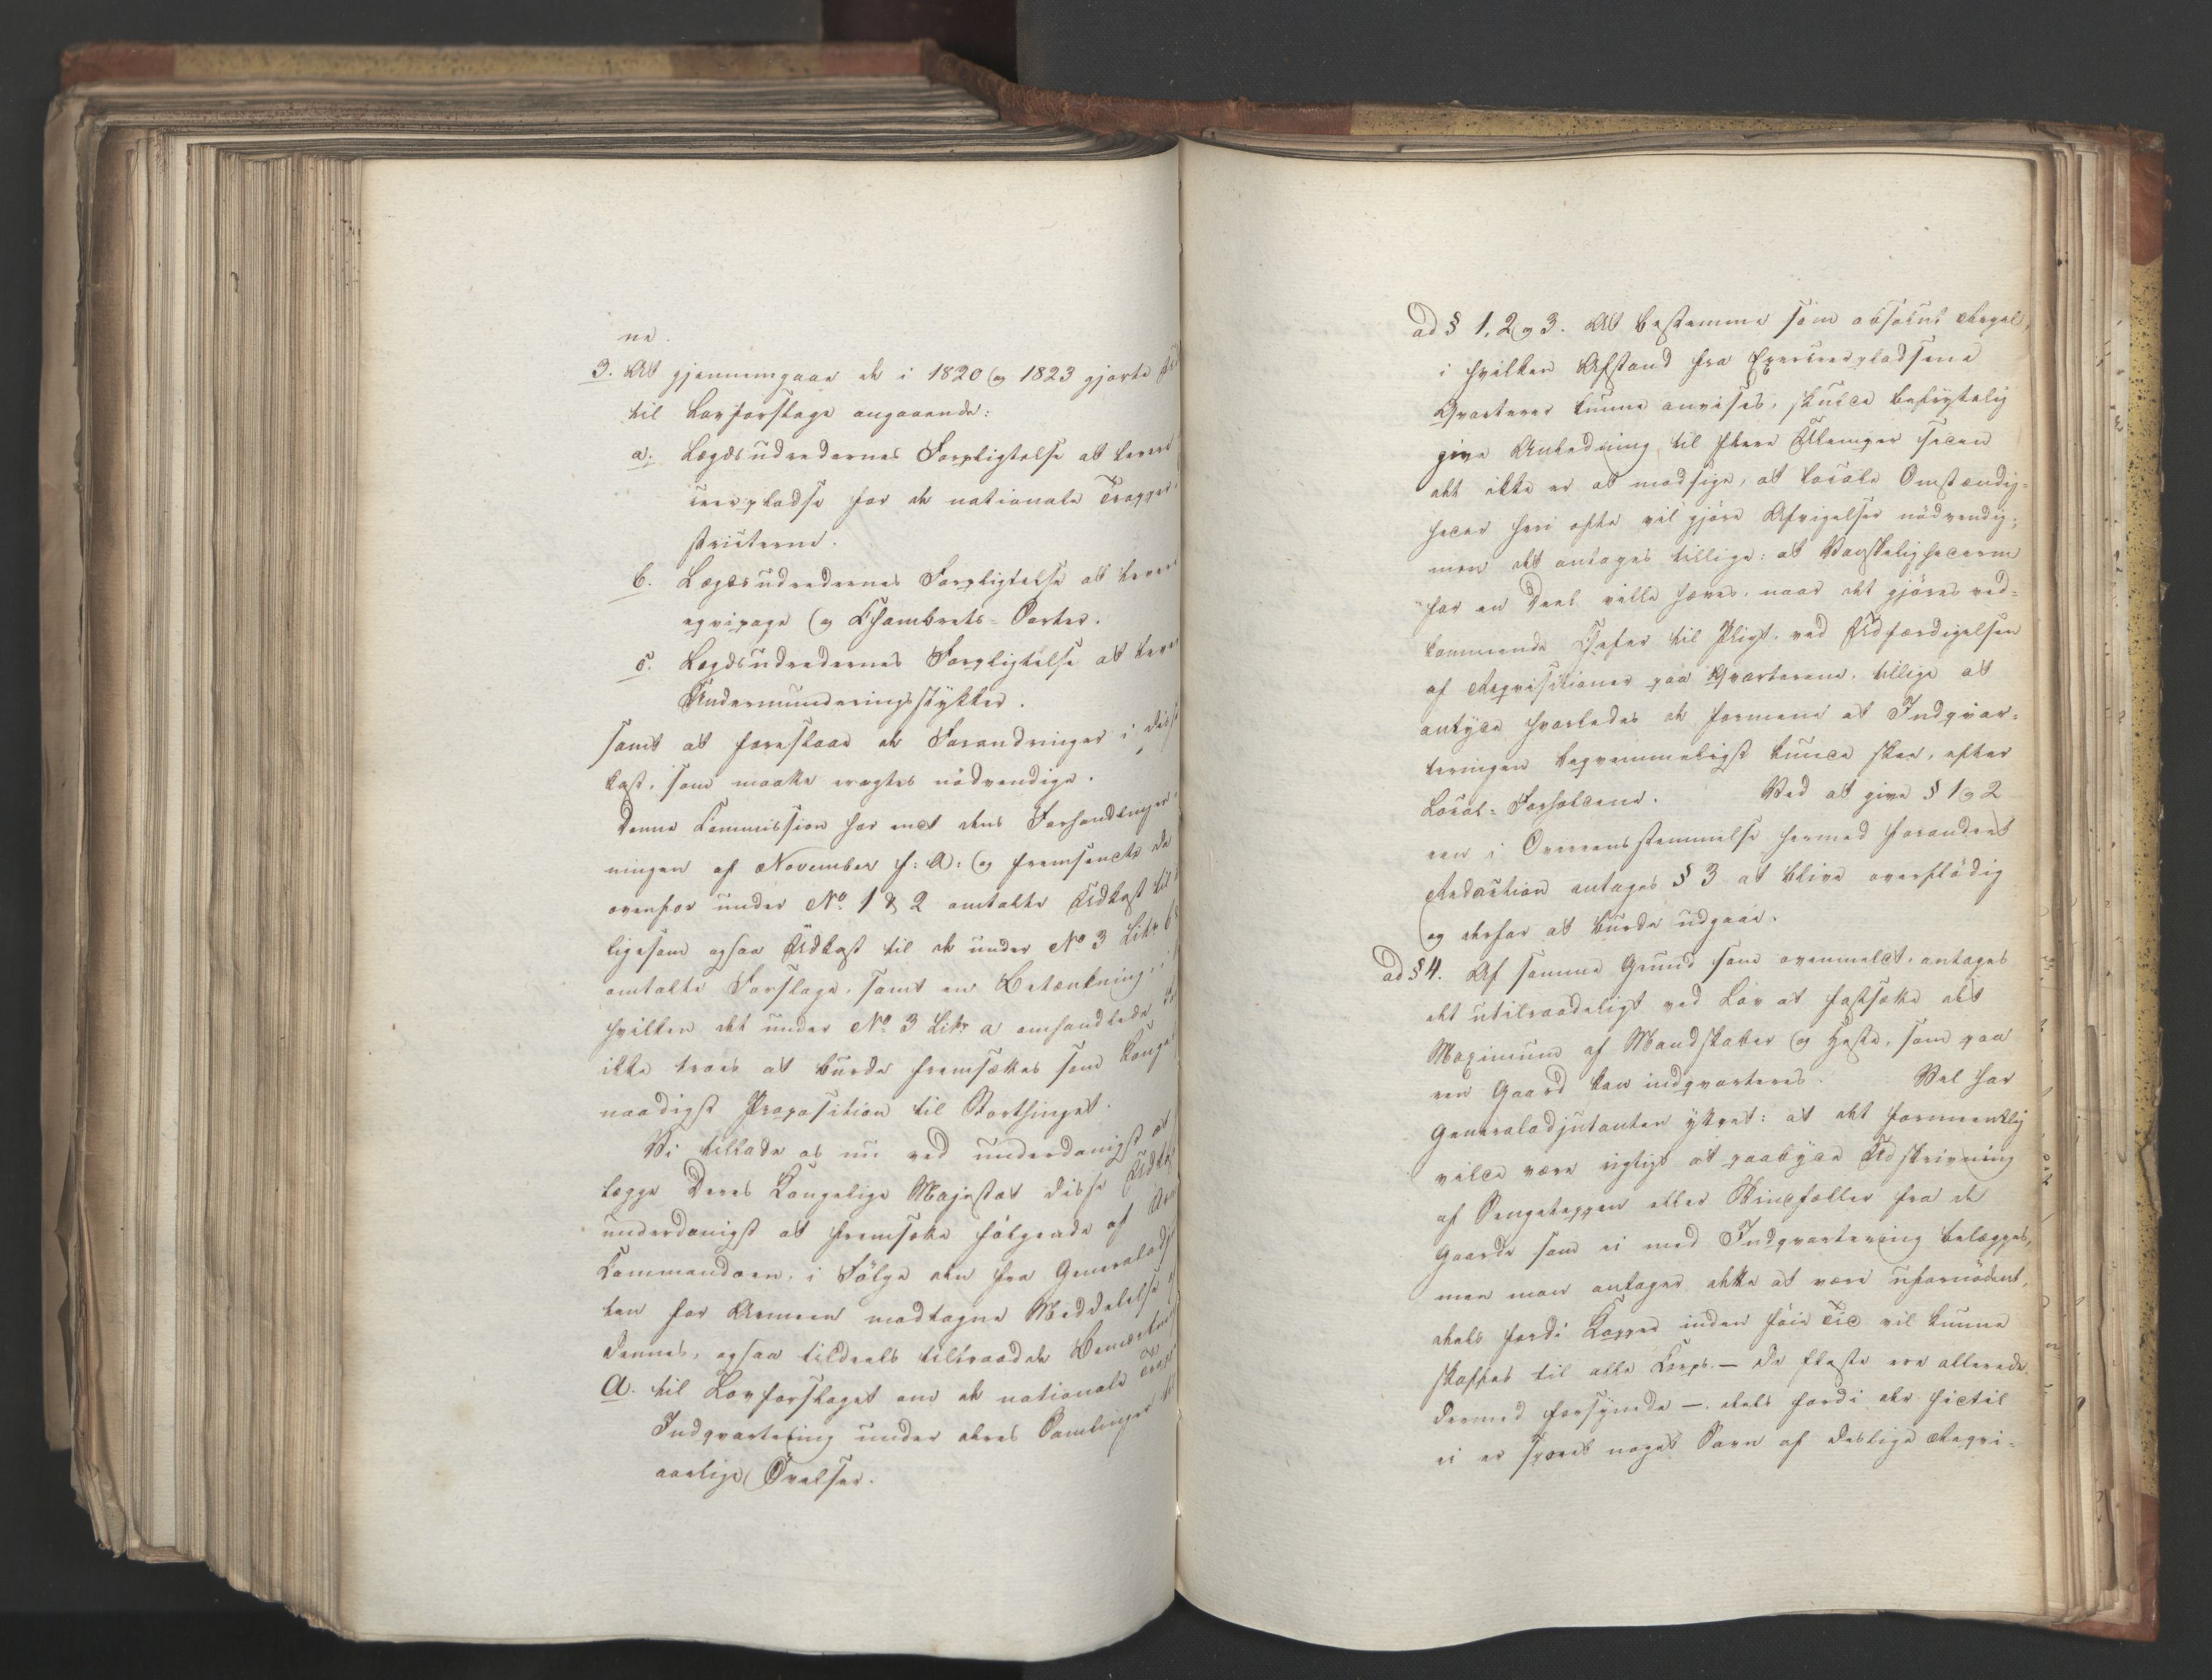 ne.
3. At gjennemgaae de i 1820 og 1823 gjorte
til Lovforslage angaaende:
a. Lægdsudredernes Forpligtelse at levere
cerpladse for de nationale Tropper
stricterne.
b. Lægdsudredernes Forpligtelse at levere
eqvipage og Chambrets-Sorter.
c. Lægdsudredernes Forpligtelse at levere
Undermunderingsstykker.
samt at foreslaae de Forandringer i disse
kast, som maatte eragtes nödvendige.
Denne Commission har endt dens Forhandlinger
ningen af November f: A: og fremsendte de
ovenfor under No. 1 & 2 omtalte Udkast til
ligesom ogsaa Udkast til de under No 3 Litr b
omtalte Forslage, samt en Betænkning, i
hvilken det under No. 3 Litr a omhandlede
ikke troes at burde fremsættes som Konge
naadigst Proposition til Storthinget.
Vi tillade os nu ved underdanigst at
lægge Deres Kongelige Majestæt disse Udka
underdanigst at fremsætte følgende af
Commandoen, i Fölge den fra Generaladj
ten for Armeen modtagne Meddelelse
dennes, ogsaa tildeels tiltraadde Bemærkn
A. til Lovforslaget om de nationale Trop
Indqvartering under deres Samlinger til
aarlige Övelser.
ad § 1, 2 og 3. At bestemme som absolut Regel,
i hvilken Afstand fra Exerceerpladsene
Qvarterer kunne anvises, skulde befrygtelig
give Anledning til flere Ulemper siden
det ikke er at modsige, at locale Omstændig-
heder heri ofte vil gjöre Afvigelser nödvendig;
men det antages tillige: at Vanskelighederne
for en Deel ville hæves, naar det gjöres ved-
kommende Chefer til Pligt, ved Udfærdigelsen
af Reqvisitioner paa Qvarterene, tillige at
antyde hvorledes de formene at Indqvar-
teringen beqvemmeligst kunde skee, efter
Local-Forholdene. Ved at give § 1 og 2
een i Overeensstemmelse hermed forandret
Redaction antages § 3 at blive overflödig
og derfor at burde udgaae.
ad § 4. Af samme Grund som ovenmeldt, antages
det utilraadeligt ved Lov at fastsætte det
Maximum af Mandskaber og Heste, som paa
een Gaard kan indqvarteres. Vel har
Generaladjutanten yttret: at det formeentlig
vilde være rigtigt at paabyde Udskrivning
af Sengetæppen eller Skindfælder fra de
Gaarde som ei med Indqvartering belægges,
men man antager dette at være ufornödent,
deels fordi Kapper inden föie Tid vil kunne
skaffes til alle Corps. — De fleste ere allerede
dermed forsynede —, deels fordi der hidtil
ei er sporet noget Savn af deslige Reqvi-